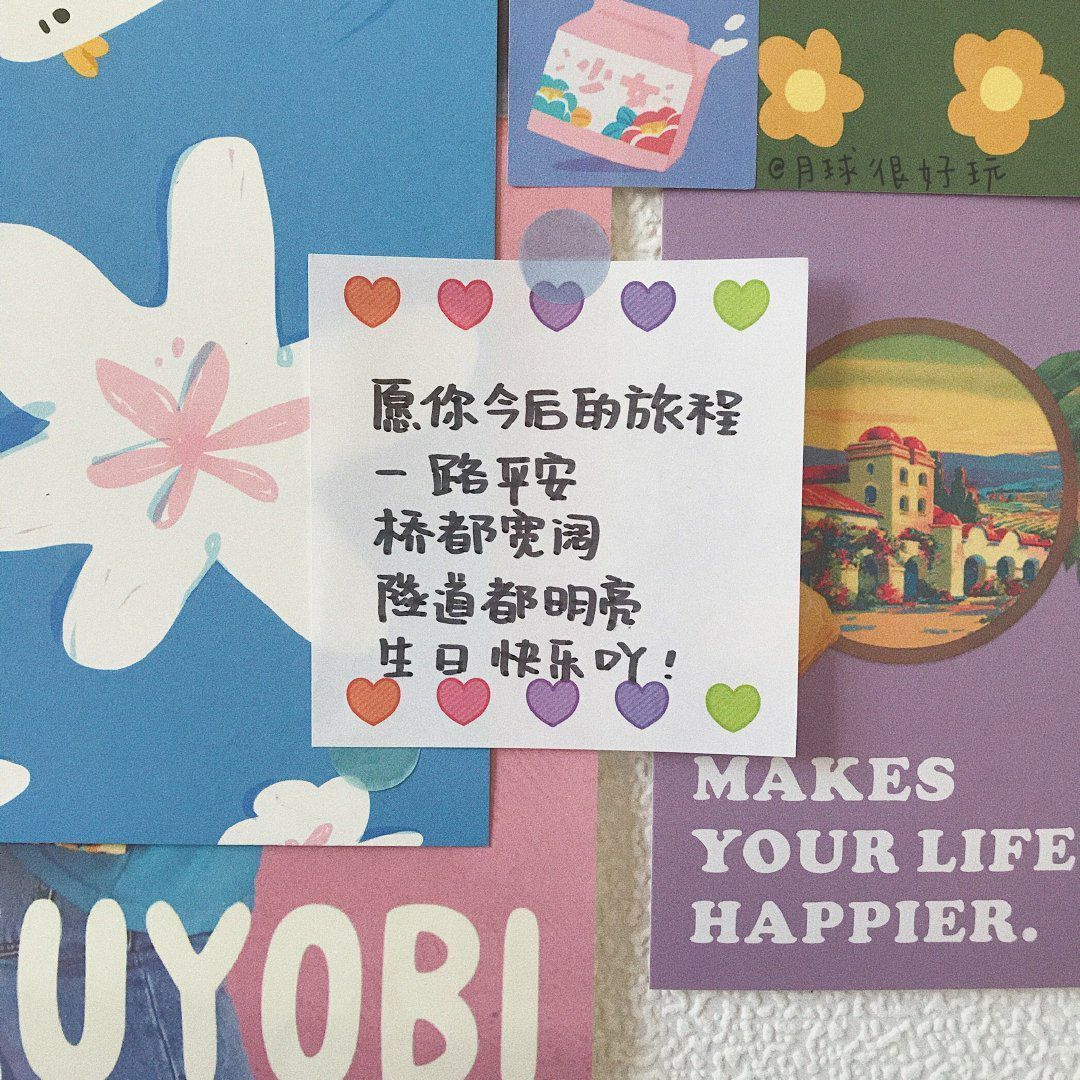 少女
@月球很好玩
愿你今后的旅程
一路平安
桥都宽阔
隧道都明亮
生日快乐吖！
MAKES
YOUR LIFE
HAPPIER.
UYOBI